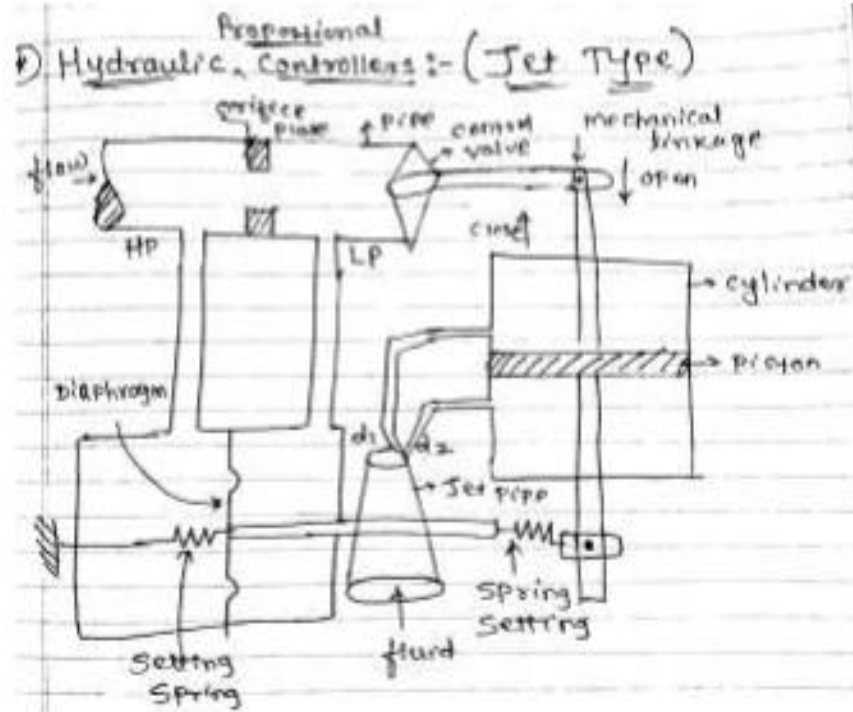 Proportional
Hydraulic Controllers :- (Jet Type)
orifice
plate
pipe
control
valve
mechanical
linkage
flow
open
close
HP
LP
cylinder
piston
Diaphragm
d1
d2
Jet pipe
Spring
Setting
fluid
Setting
Spring